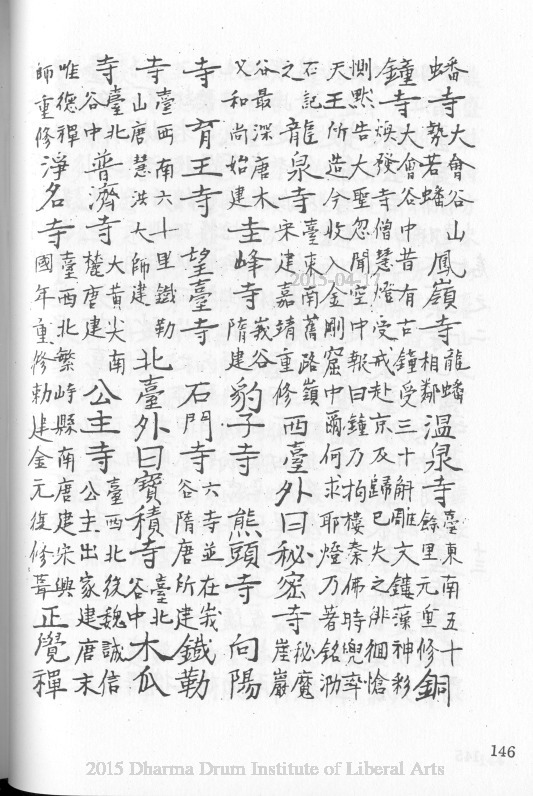 蟠寺大會谷山勢若蟠鳳嶺寺龍蟠相鄰溫泉寺臺東南五十餘里元重修銅
鐘寺大會谷中昔有古鐘受三十斛雕文鏤藻神彩煥發寺僧慧燈受戒赴京及歸已失之徘徊愴
惻默告大聖忽聞空中報曰鐘乃拘樓秦佛時兜率
天王所造今收入金剛窟中爾何求耶燈乃著銘泐
石記之龍泉寺臺東南舊路嶺宋建嘉靖重修西臺外曰秘密寺秘魔崖巖
谷最深唐木叉和尚始建圭峰寺峩谷隋建豹子寺 熊頭寺 向陽
寺 育王寺 望臺寺 石門寺六寺並在峩谷隋唐所建鐵勒
寺臺西南六十里鐵勒山唐慧洪大師建北臺外曰寶積寺臺北谷中木瓜
寺臺北谷中普濟寺大黃尖南麓唐建公主寺臺西北後魏誠信公主出家建唐末
唯德禪師重修淨名寺臺西北繁峙縣南唐建宋興國年重修勅建金元復修葺正覺禪
146
2015-04-17
2015 Dharma Drum Institute of Liberal Arts